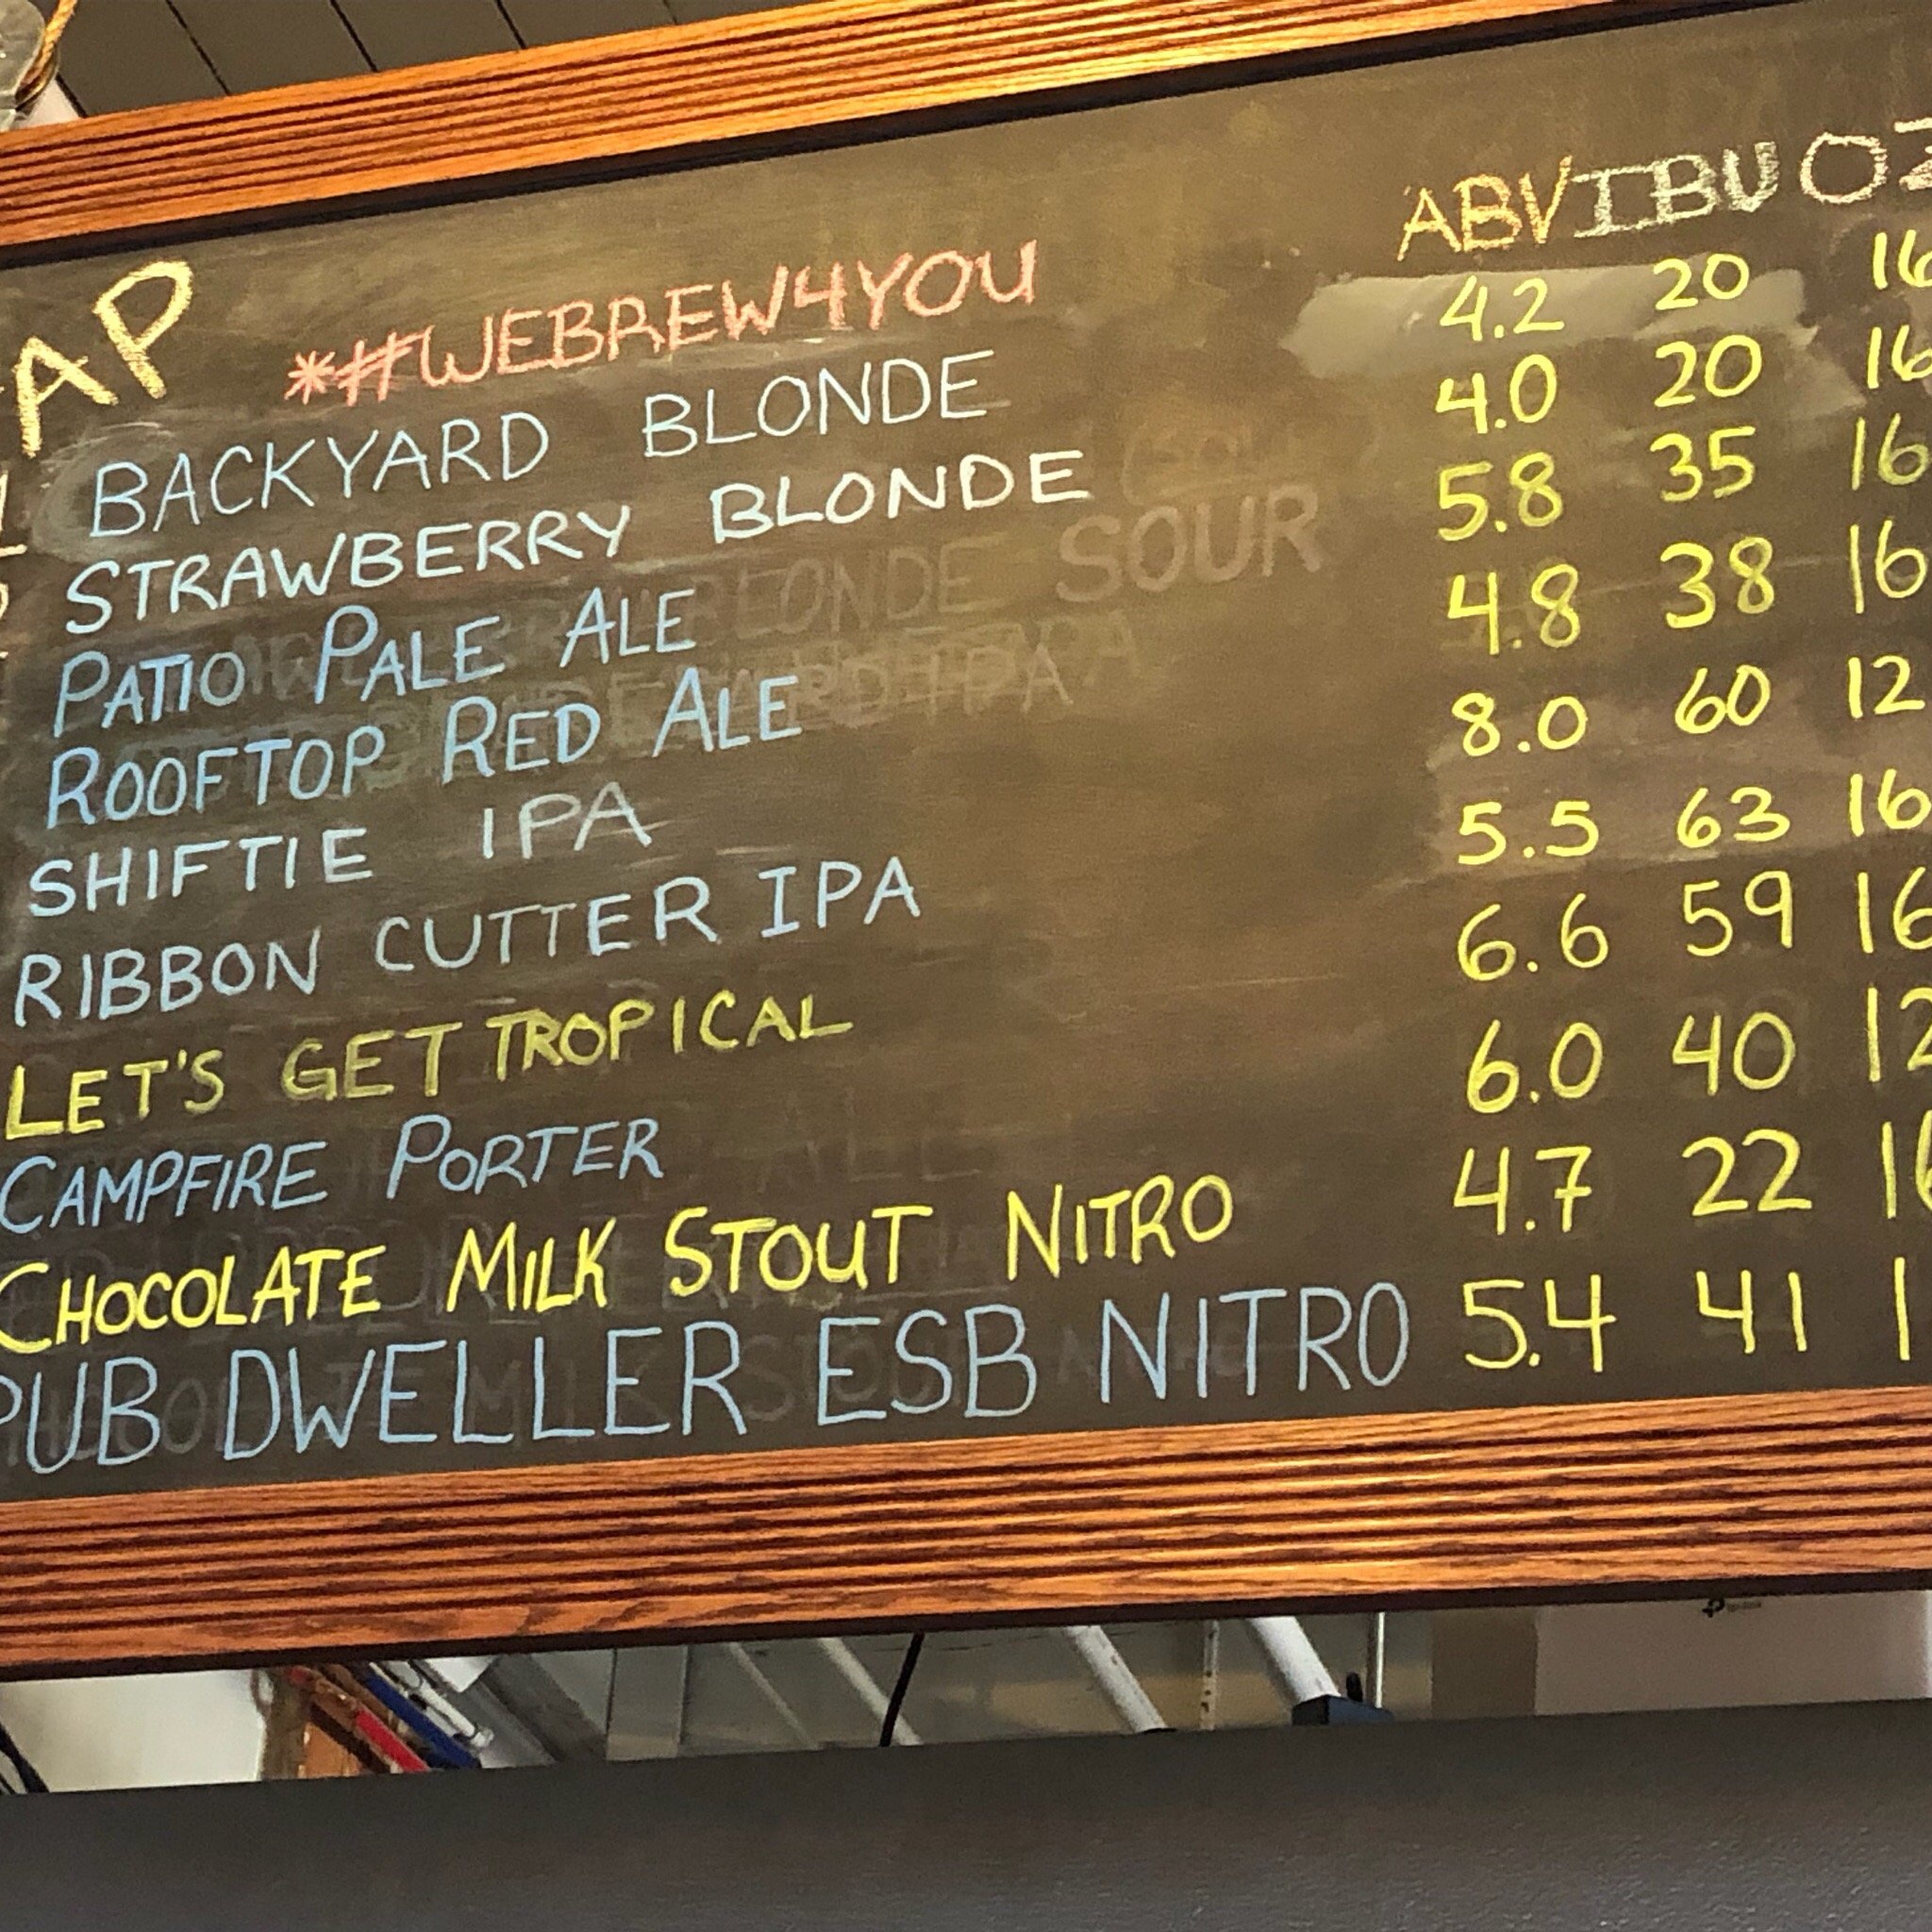 AP *#WEBREW4YOU ABV IBU OZ
BACKYARD BLONDE 4.2 20 16
STRAWBERRY BLONDE 4.0 20 16
PATIO PALE ALE 5.8 35 16
ROOFTOP RED ALE 4.8 38 16
SHIFTIE IPA 8.0 60 12
RIBBON CUTTER IPA 5.5 63 16
LET'S GET TROPICAL 6.6 59 16
CAMPFIRE PORTER 6.0 40 12
CHOCOLATE MILK STOUT NITRO 4.7 22 16
PUB DWELLER ESB NITRO 5.4 41 1